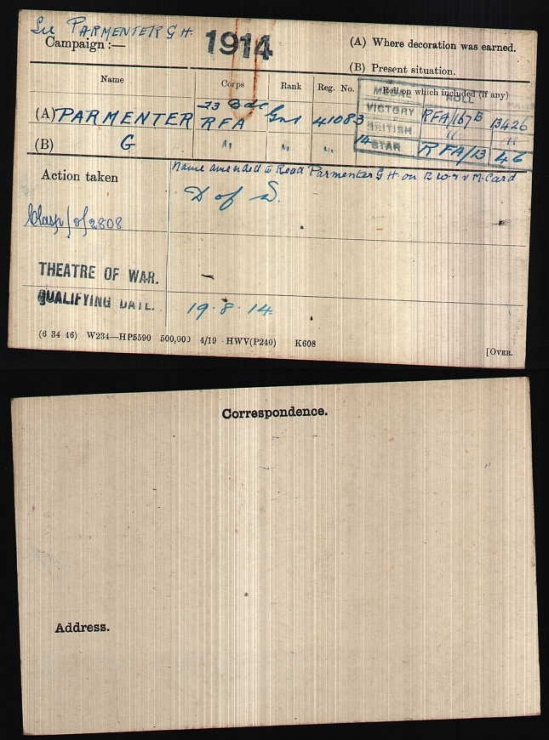 See PARMENTER G H.
Campaign :— 1914
(A) Where decoration was earned.
(B) Present situation.
Name Corps Rank Reg. No. Roll on which included (if any)
MEDAL ROLL PAGE
(A) PARMENTER 23 Bde RFA Gnr 41083 VICTORY RFA/167B 13426
BRITISH " "
(B) G " " " 14 STAR RFA/13 46
Action taken
Name amended to Read Parmenter G H on B W & V M. Card
D of D.
Clasp/of 2808
THEATRE OF WAR.
QUALIFYING DATE. 19.8.14
(6 34 46) W234—HP5590 500,000 4/19 HWV(P240) K608
[OVER.
Correspondence.
Address.